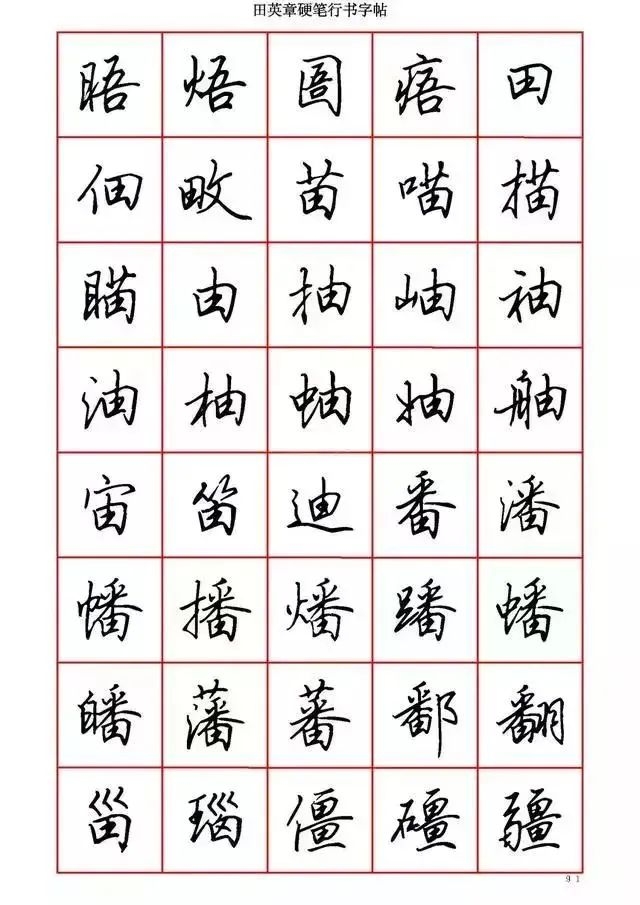 田英章硬笔行书字帖
晤 焐 圄 痦 田
佃 畋 苗 喵 描
瞄 由 抽 岫 袖
油 柚 蚰 妯 舳
宙 笛 迪 番 潘
幡 播 燔 蹯 蟠
皤 藩 蕃 鄱 翻
甾 瑙 僵 礓 疆
91